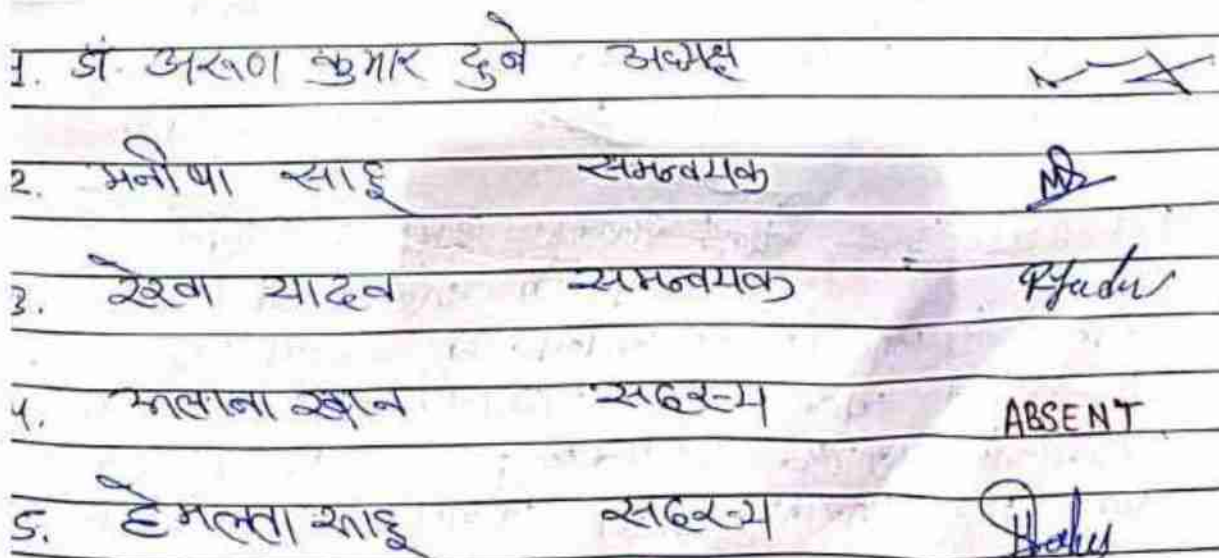 1. डॉ. अरूण कुमार दुबे अध्यक्ष
2. मनीषा साहू समन्वयक
3. रेखा यादव समन्वयक RYadav
4. खान सदस्य ABSENT
5. हेमलता साहू सदस्य